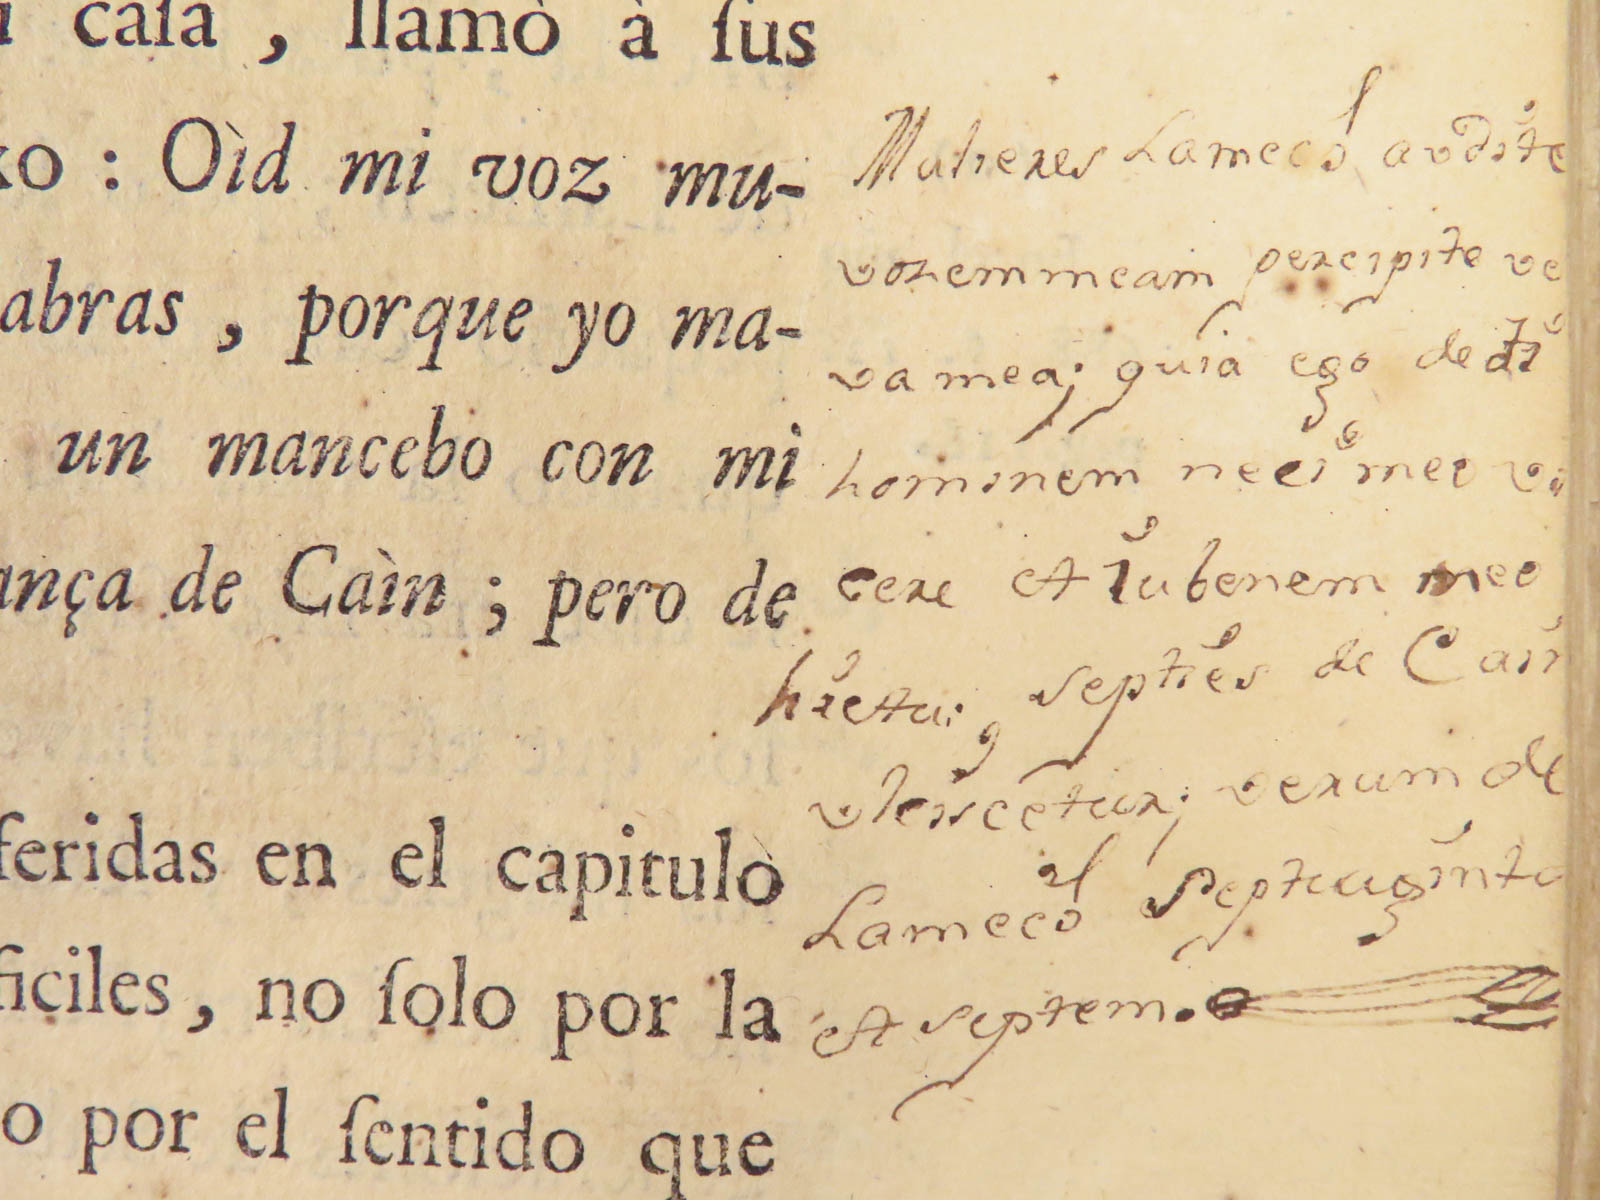 casa, llamò à sus
xo : Oìd mi voz mu-
abras, porque yo ma-
un mancebo con mi
ança de Caìn ; pero de
feridas en el capitulo
ficiles, no solo por la
o por el sentido que
Mulieres Lamech audite
vozem meam percipite ve
va mea; quia ego de di
hominem neci meo v
cere et iubenem meo
septies de Cain
ulciscetur; verum de
Lamech septuaginta
et septem.